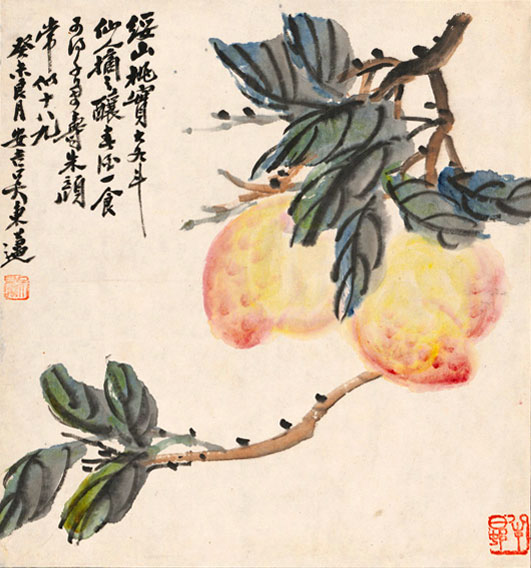 綏山桃實大如斗
仙人摘之釀春酒一食
可得千年壽朱顏
常如十八九
癸未良月安吉吳東邁